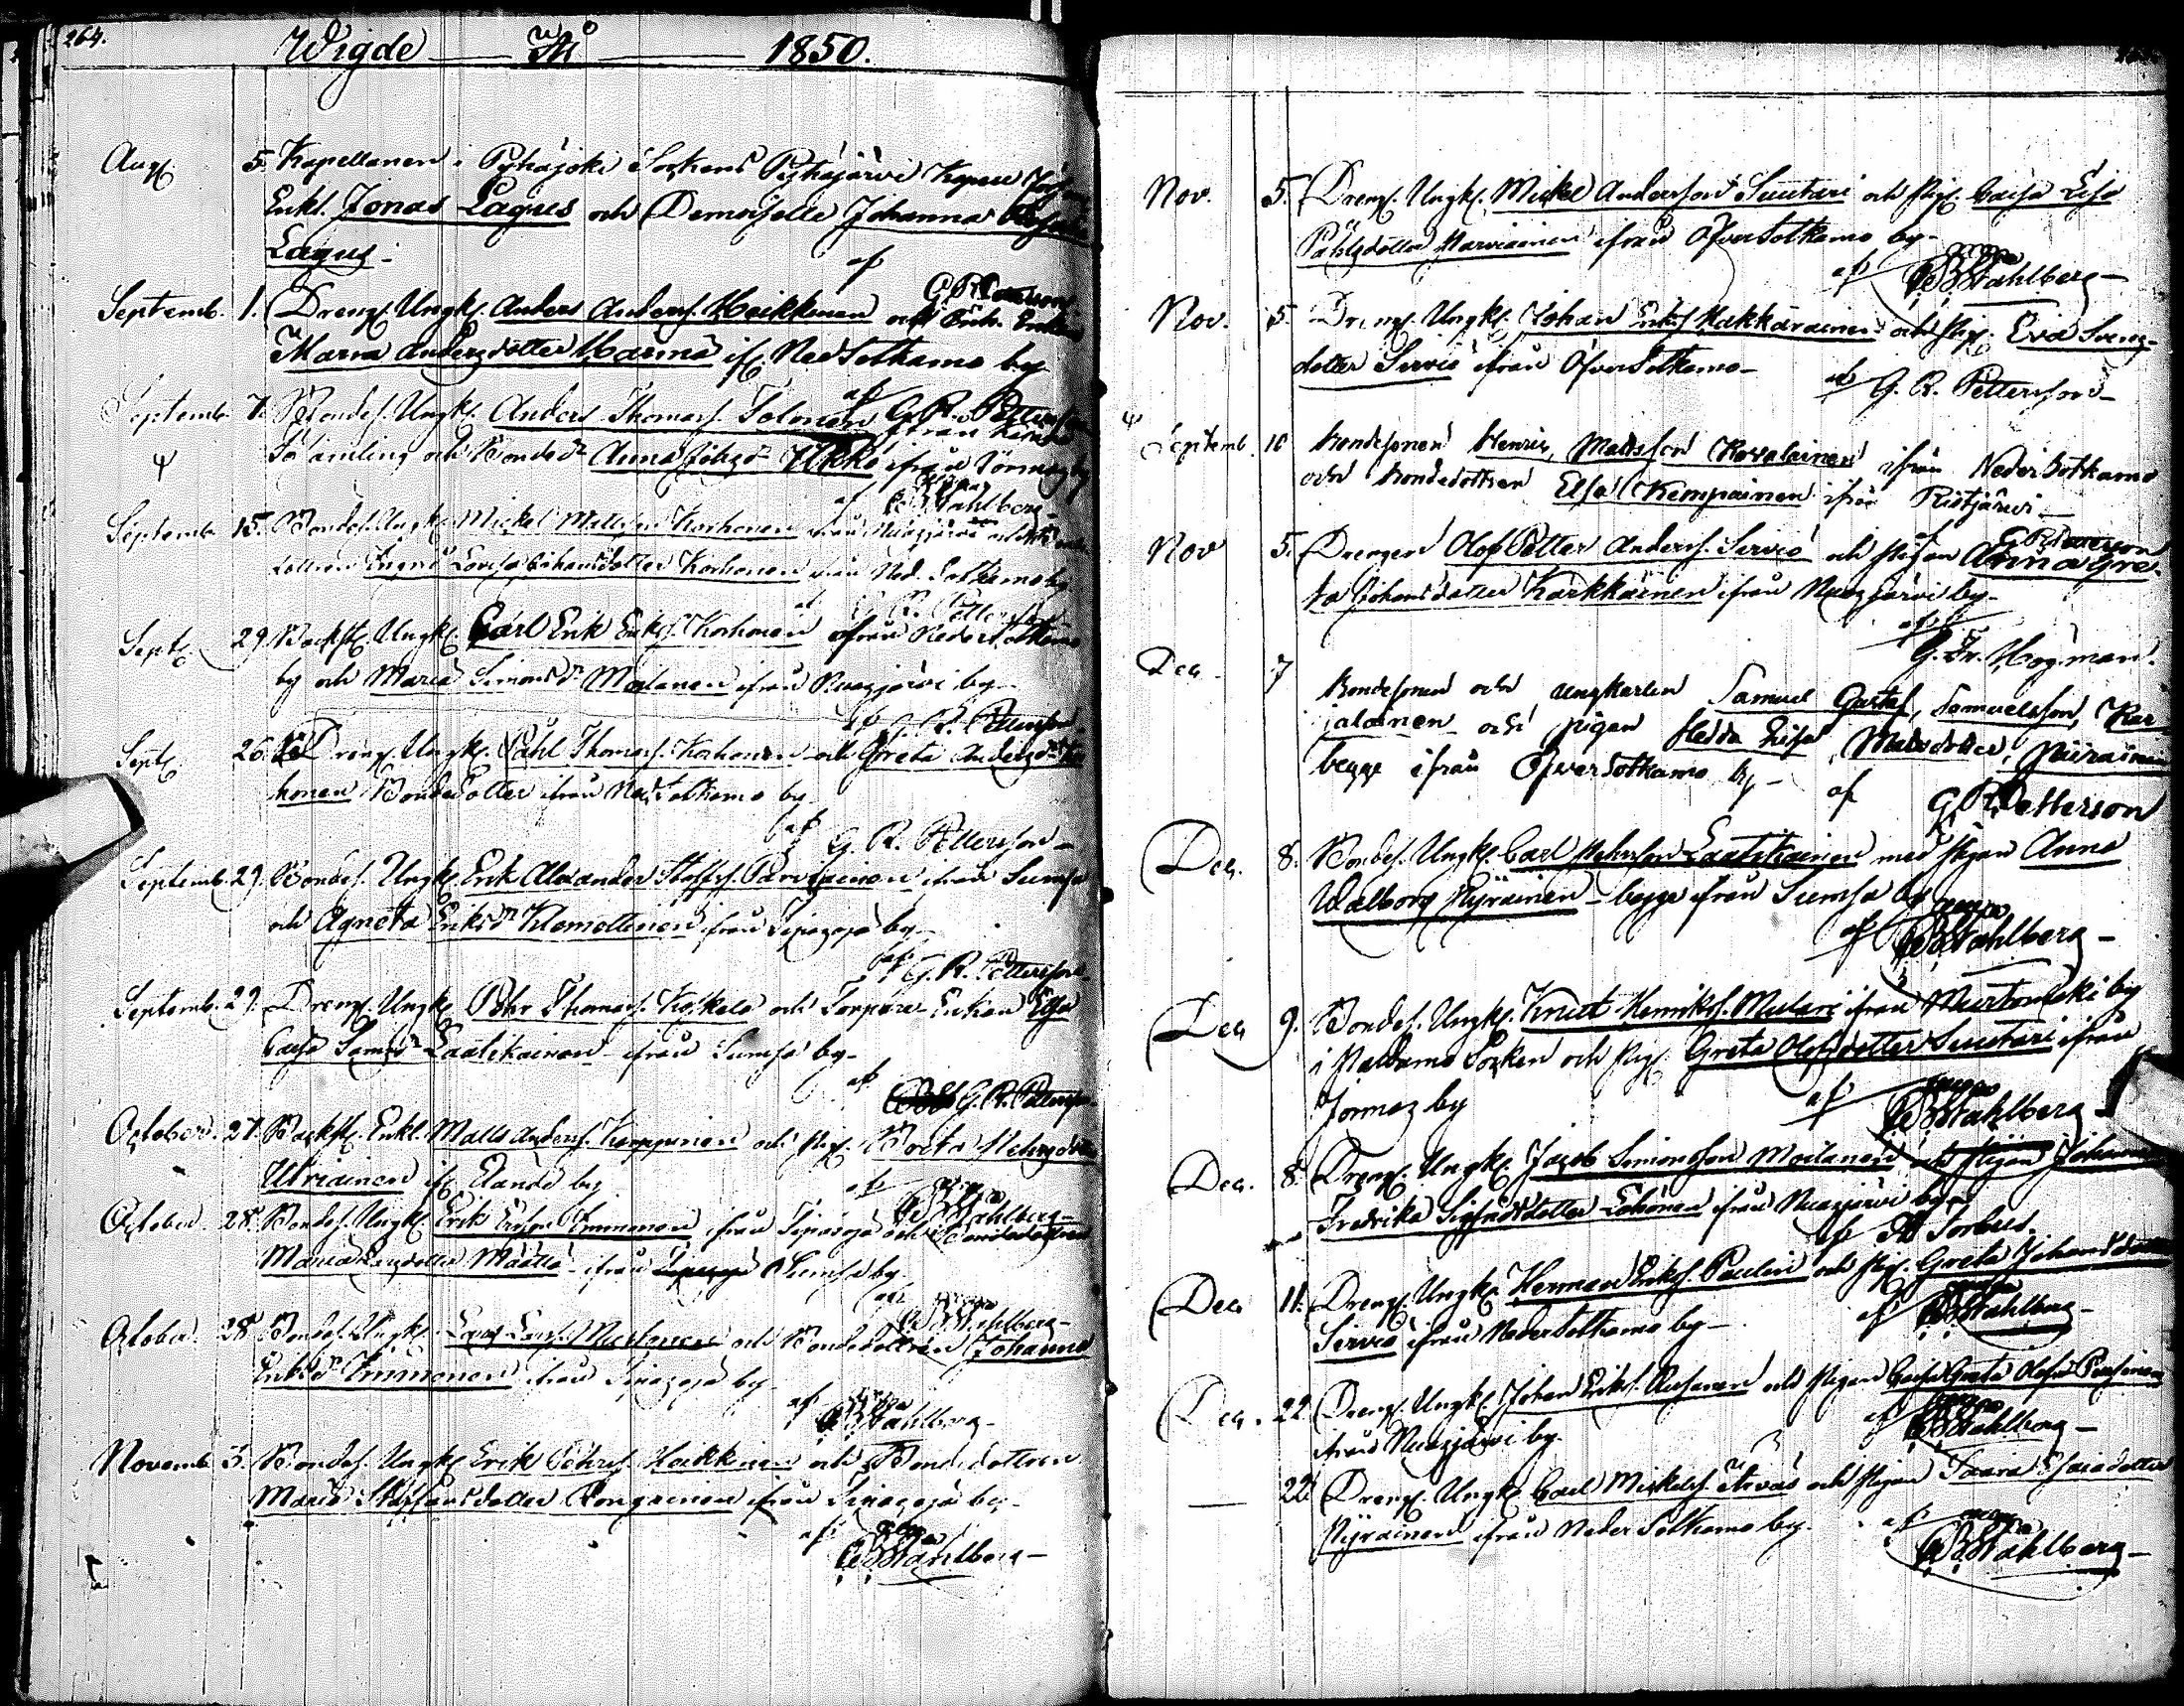 264.
Wigde Åhr 1850.
Aug. 5. Kapellanen i Pyhäjoki Sockens Pyhäjärvi Kapell
Enkl. Jonas Lagus och Demoiselle Johanna
Lagus.
af
G. R. Petterson
Septemb. 1. Dreng. Ungk. Anders Anders. Heikkinen och Enk.
Maria Andersdotter Härmä ifr. Ned Sotkamo by
af G. R. Petterson
Septemb. 7. Bondes. Ungk. Anders Thomass. Tolonen ifrån
Församling och Bonded:r Anna Johsd:r Ukko ifrån Jormas by
af Stahlberg
Septemb. 15. Bondes. Ungk. Mickel Mattsson Korhonen från Nuasjärvi och
dottren Ingrid Lovisa Johansdotter Korhonen från Ned. Sotkamo by
af G. R. Petterson
Sept. 29. Backst. Ungk. Carl Erik Eriks. Korhonen ifrån Neder Sotkamo
by och Maria Simonsd:r Moilanen ifrån Nuasjärvi by
af G. R. Petterson
Sept. 26. Dreng. Ungk. Påhl Thomass. Korhonen och Greta Andersd:r
honen Bondedotter ifrån Ned Sotkamo by
af G. R. Petterson
Septemb. 29. Bondes. Ungk. Erik Alexander Staffs. Parviainen ifrån Sumsa
och Agneta Eriksd:r Klemettinen ifrån Tipasoja by
af G. R. Petterson
Septemb. 29. Dreng. Ungk. Pehr Thomass. Koskelo och Torpare Enkan Elsa
Caisa Samsd:r Laatikainen ifrån Sumsa by
af
G. R. Petterson
October. 27. Backst. Enkl. Matts Anders. Kemppinen och Pig. Breta Pehrsdotter
Utriainen ifr. Alande by
af Stahlberg
October. 28. Bondes. Ungk. Erik Ersson Immonen ifrån Tipasoja och Bondedottren
Maria Larsdotter Määttä ifrån Sumsa by
af Stahlberg
October. 28 Bondes. Ungk. Lars Lars. Mustonen och Bondedottren Johanna
Eriksd:r Immonen ifrån Tipasoja by
af Stahlberg
Novemb. 3. Bondes. Ungk. Erik Pehrs. Heikkinen och Bondedottren
Maria Staffansdotter Rongainen ifrån Tipasoja by
af Stahlberg
Nov. 5. Dreng. Ungk. Mickel Andersson Suutari och Pig. Caisa Lisa
Påhlsdotter Karviainen ifrån Öfver Sotkamo by
af Stahlberg
Nov. 5. Dreng. Ungk. Johan Eriks. Kakkarainen och Pig. Eva Svens-
dotter Servio ifrån Öfver Sotkamo
af G. R. Petterson
Septemb. 10 Bondesonen Henric Mattsson Kovalainen ifrån Neder Sotkamo
och Bondedottren Elsa Kempainen ifrån Ristijärwi
af G. R. Petterson
Nov 5. Drengen Olof Petter Anders. Servio och Pigan Anna Gre-
ta Johansdotter Karkkainen ifrån Nuasjärvi by
af
G. Fr. Högman.
Dec. 7 Bondesonen och ungkarlen Samuel Gustaf Samuelsson Kar-
jalainen och pigan Hedda Lisa Matsdotter Piirainen
begge ifrån Öfver Sotkamo by
af G. R. Petterson
Dec. 8. Bondes. Ungk. Carl Pehrsson Laatikainen med pigan Anna
Walborg Kyrainen begge ifrån Sumsa by
af Stahlberg
Dec. 9. Bondes. Ungk. Knut Henriks. Mulari ifrån Murtomäki by
i Paldamo Socken och Pig. Greta Olofsdotter Suutari ifrån
Jormas by
af Stahlberg
Dec. 8. Dreng. Ungk. Jacob Simonsson Moilanen och Pigan Johanna
Fredrika Sigfridsdotter Lohonen ifrån Nuasjärvi by
af
Dec. 11. Dreng. Ungk. Herman Eriks. Paulin och Pig. Greta Johansdotter
Servio ifrån Neder Sotkamo by
af Stahlberg
Dec. 22. Dreng. Ungk. Johan Eriks. och Pigan Caisa Greta Olofsd:r
ifrån Nuasjärvi by
af Stahlberg
22. Dreng. Ungk. Carl Mickels. och Pigan Saara Esaiadotter
Kyrainen ifrån Neder Sotkamo by
af Stahlberg